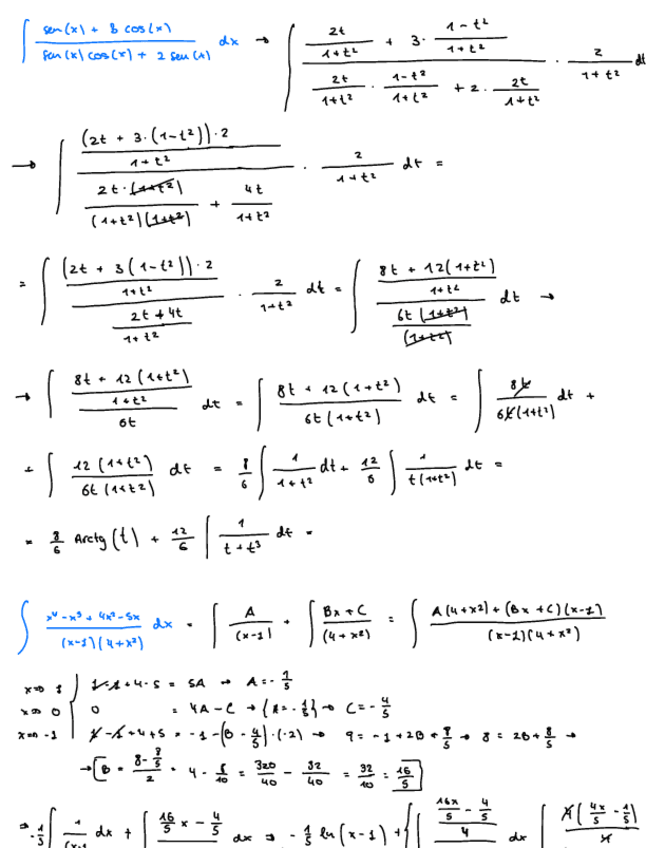 ∫ (sen(x) + 3 cos(x)) / (sen(x) cos(x) + 2 sen(x)) dx → ∫ (2t/(1+t²) + 3 · (1-t²)/(1+t²)) / (2t/(1+t²) · (1-t²)/(1+t²) + 2 · 2t/(1+t²)) · 2/(1+t²) dt
→ ∫ ((2t + 3·(1-t²))·2 / (1+t²)) / (2t·(1+t²) / ((1+t²)(1+t²)) + 4t/(1+t²)) · 2/(1+t²) dt =
= ∫ ((2t + 3(1-t²))·2 / (1+t²)) / ((2t + 4t)/(1+t²)) · 2/(1+t²) dt = ∫ ((8t + 12(1+t²)) / (1+t²)) / (6t(1+t²)/(1+t²)) dt →
→ ∫ ((8t + 12(1+t²)) / (1+t²)) / 6t dt = ∫ (8t + 12(1+t²)) / (6t(1+t²)) dt = ∫ 8t / (6t(1+t²)) dt +
+ ∫ 12(1+t²) / (6t(1+t²)) dt = 8/6 ∫ 1/(1+t²) dt + 12/6 ∫ 1/(t(1+t²)) dt =
= 8/6 Arctg(t) + 12/6 ∫ 1/(t+t³) dt =
∫ (x⁴-x³+4x²-5x) / ((x-1)(4+x²)) dx = ∫ A/(x-1) + ∫ (Bx+C)/(4+x²) = ∫ (A(4+x²) + (Bx+C)(x-1)) / ((x-1)(4+x²))
x=> 1 | 1-1+4-5 = 5A → A = -1/5
x=> 0 | 0 = 4A - C → {A = -1/5} → C = -4/5
x=> -1 | 1-1+4+5 = -1-(B-4/5)·(-2) → 9 = -1+2B+8/5 → 8 = 2B+8/5 →
→ [B = (8-8/5)/2 = 4 - 8/10 = 320/40 - 32/40 = 32/10 = 16/5]
→ -1/5 ∫ 1/(x-1) dx + ∫ (16/5 x - 4/5) dx → -1/5 ln(x-1) + {∫ (16x/5 - 4/5)/4 dx ∫ 4(4x/5 - 1/5)/4